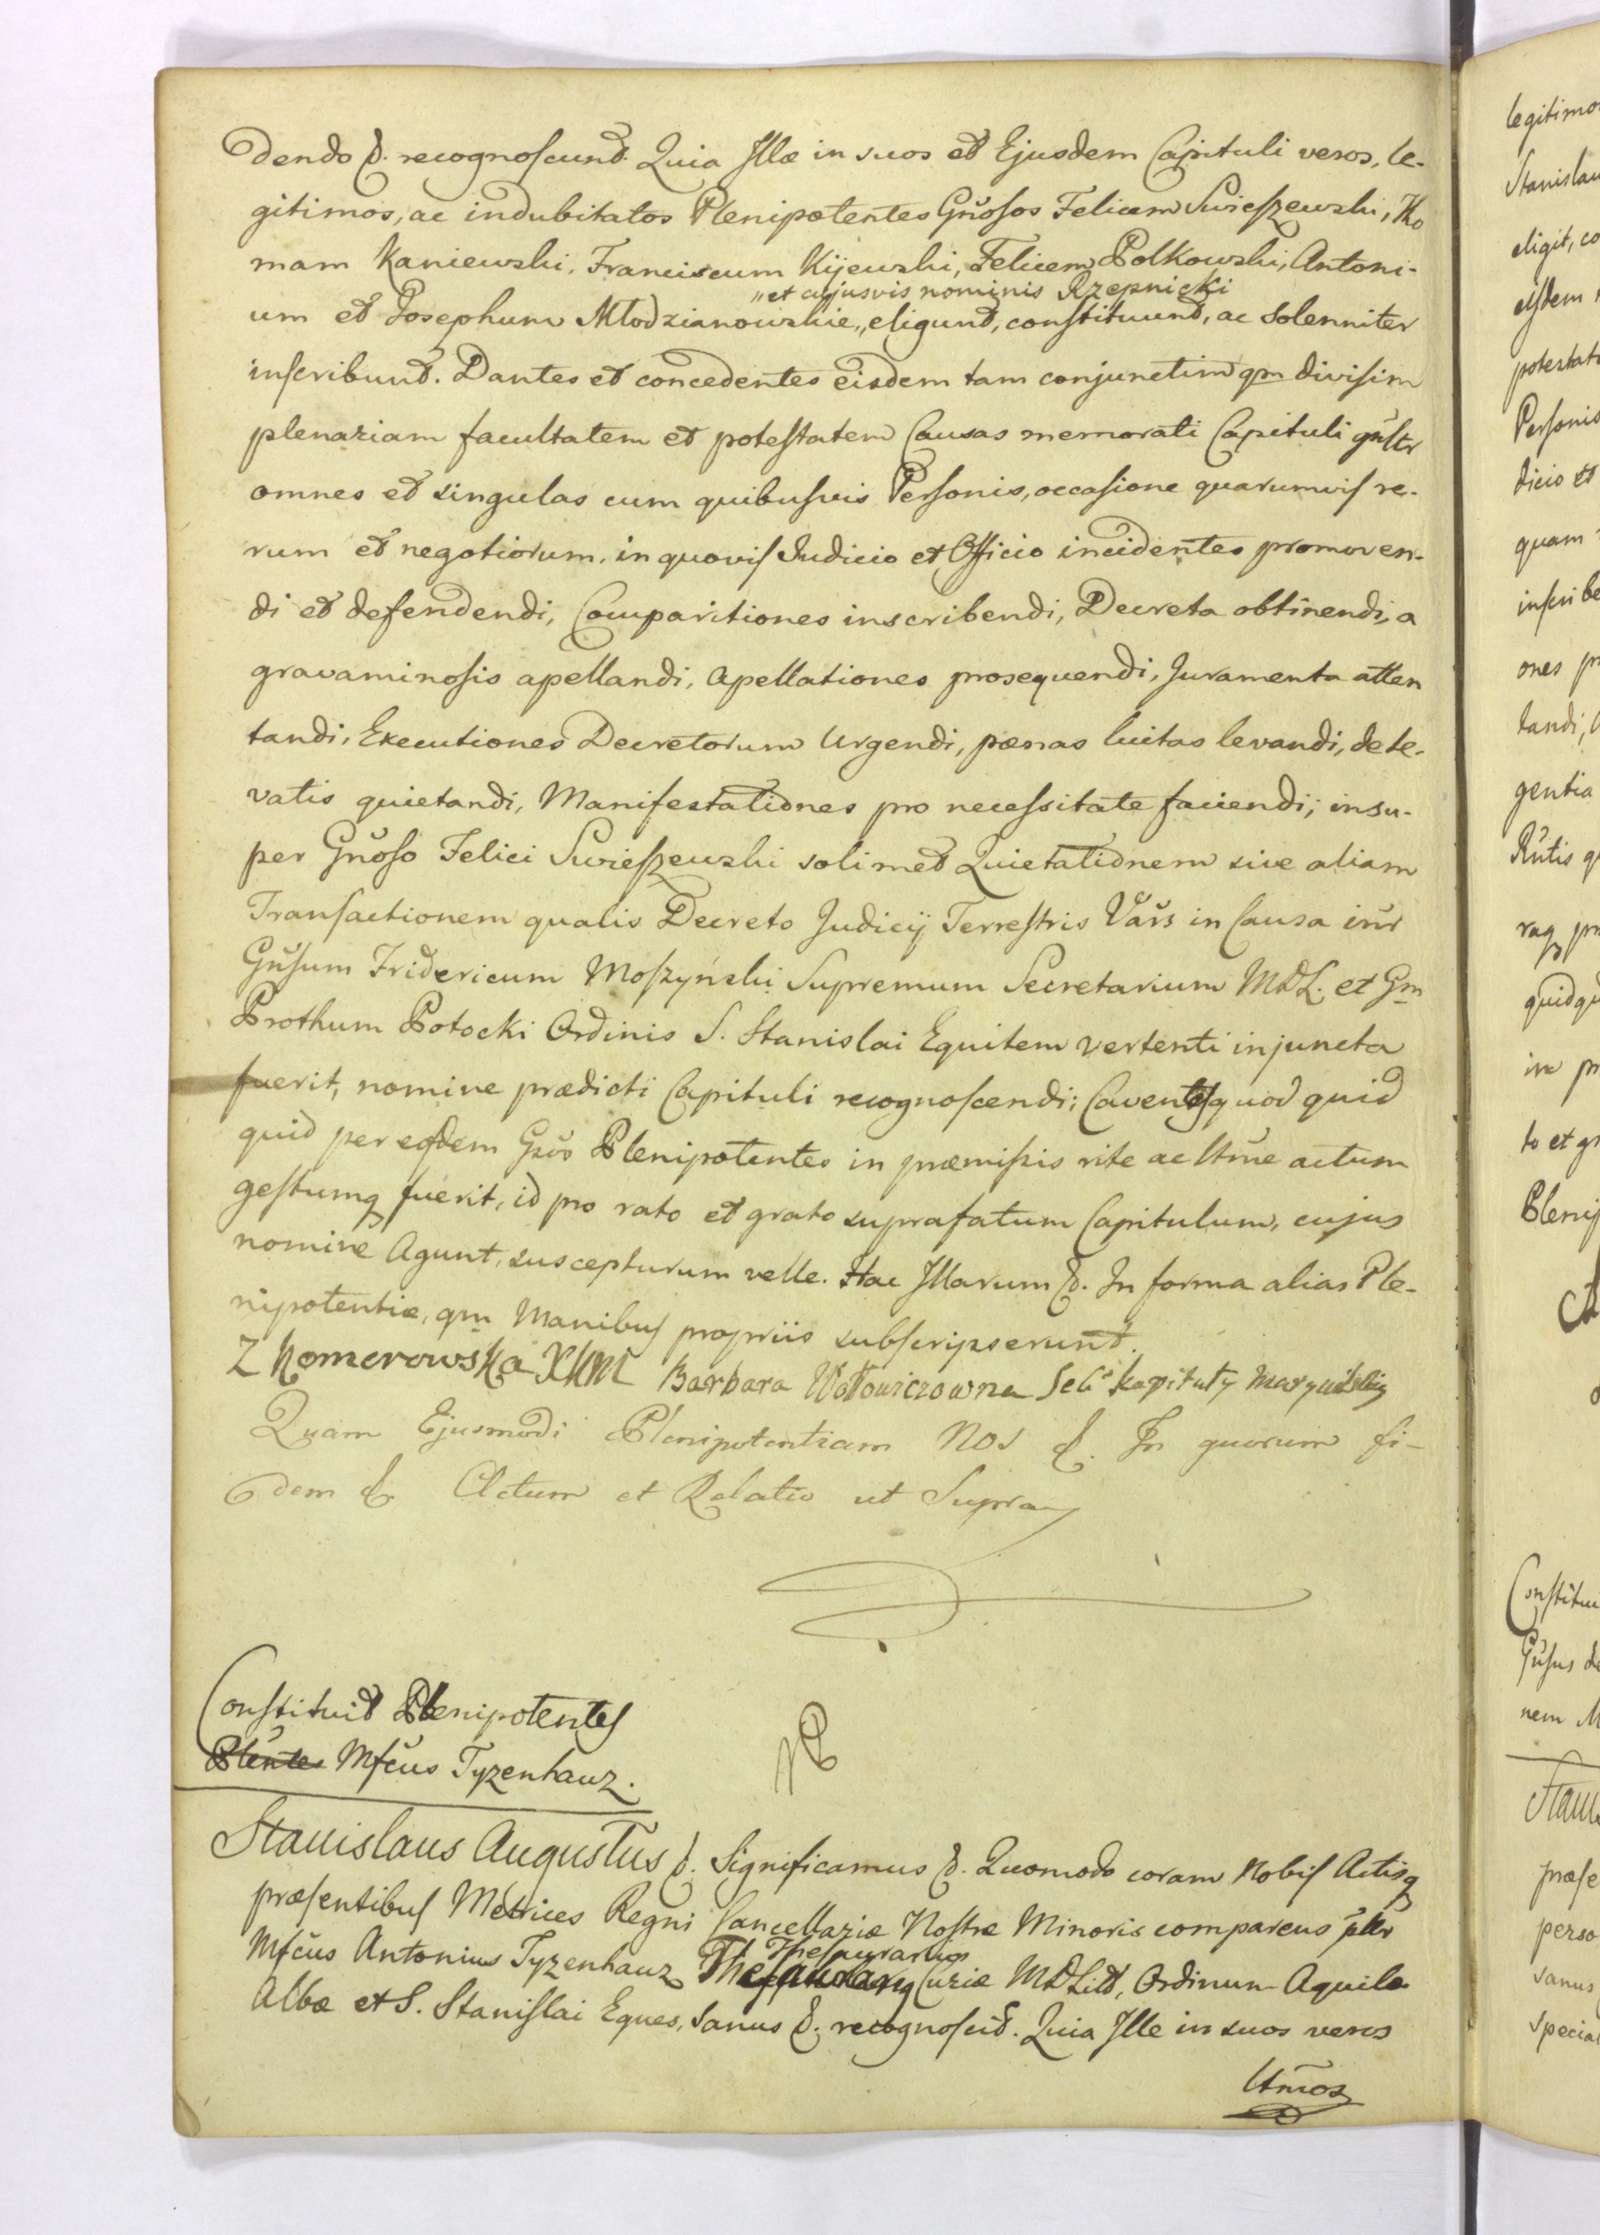 dendo &. recognoscunt. Quia Illæ in suos et Ejusdem Capituli veros, le-
gitimos, ac indubitatos Plenipotentes Gñosos Felicem Swieszewski, Tho
mam Kaniewski, Franciscum Kijewski, Felicem Polkowski, Antoni-
„et cujusvis nominis Rzepnicki
um et Josephum Młodzianowskie„ eligunt, constituunt, ac solenniter
inscribunt. Dantes et concedentes eisdem tam conjunctim qm divisim
plenariam facultatem et potestatem Causas memorati Capituli gñltr
omnes et singulas cum quibusvis Personis, occasione quarumvis re-
rum et negotiorum, in quovis Judicio et Officio incidentes promoven-
di et defendendi, Comparitiones inscribendi, Decreta obtinendi, a
gravaminosis apellandi, Apellationes prosequendi, Juramenta atten
tandi, Executiones Decretorum Urgendi, pænas luitas levandi, de le-
vatis quietandi, Manifestationes pro necessitate faciendi; insu-
per Gñoso Felici Swieszewski solimet Quietationem sive aliam
Transactionem qualis Decreto Judicij Terrestris Vars in Causa intr
Gñsum Fridericum Moszyński Supremum Secretarium MDL. et Gm
Prothum Potocki Ordinis S. Stanislai Equitem vertenti injuncta
fuerit, nomine prædicti Capituli recognoscendi; Caventes quod quid
quid per eosdem Gsos Plenipotentes in præmissis rite ac ltme actum
gestumq fuerit, id pro rato et grato suprafatum Capitulum, cujus
nomine Agunt, suscepturum velle. Hac Illarum &. In forma alias Ple-
nipotentiæ, qm Manibus propriis subscripserunt.
Z Komorowska XKM Barbara Wołowiczowna Seć Kapituły Marywilskiey
Quam Ejusmodi Plenipotentiam Nos &. In quorum fi-
dem & Actum et Relatio ut Supra
Constituit Plenipotentes
Plentes Mfcus Tyzenhauz.
Stanislaus Augustus &. Significamus &. Quomodo coram Nobis Actisq
præsentibus Metrices Regni Cancellariæ Nostræ Minoris comparens pltr
Thesaurarius
Mfcus Antonius Tyzenhauz Thesaurarius Curiæ MDLitt, Ordinum Aquilæ
Albæ et S. Stanislai Eques, sanus &. recognoscit. Quia Ille in suos veros
ltmos
legitimo
Stanislau
eligit, co
eisdem
potestat
Personis
dicio et
quam
inscribe
ones p
tandi,
gentia
Rutis q
raq pr
quidqu
in pr
to et gr
Plenip
Constitui
Gñsus de
nem M
Stani
præse
perso
sanus
special